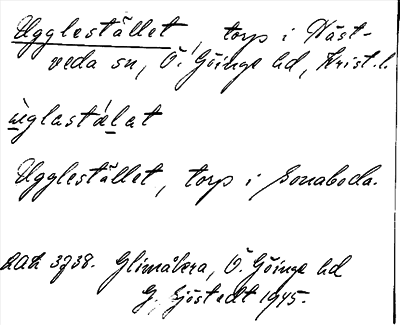 Ugglestället, torp i Näst-
veda sn, Ö. Göinge hd, Krist. l.
ùglastálat
Ugglestället, torp i Sonaboda.
LAL 3738. Glimåkra, Ö. Göinge hd
G. Sjöstedt 1945.